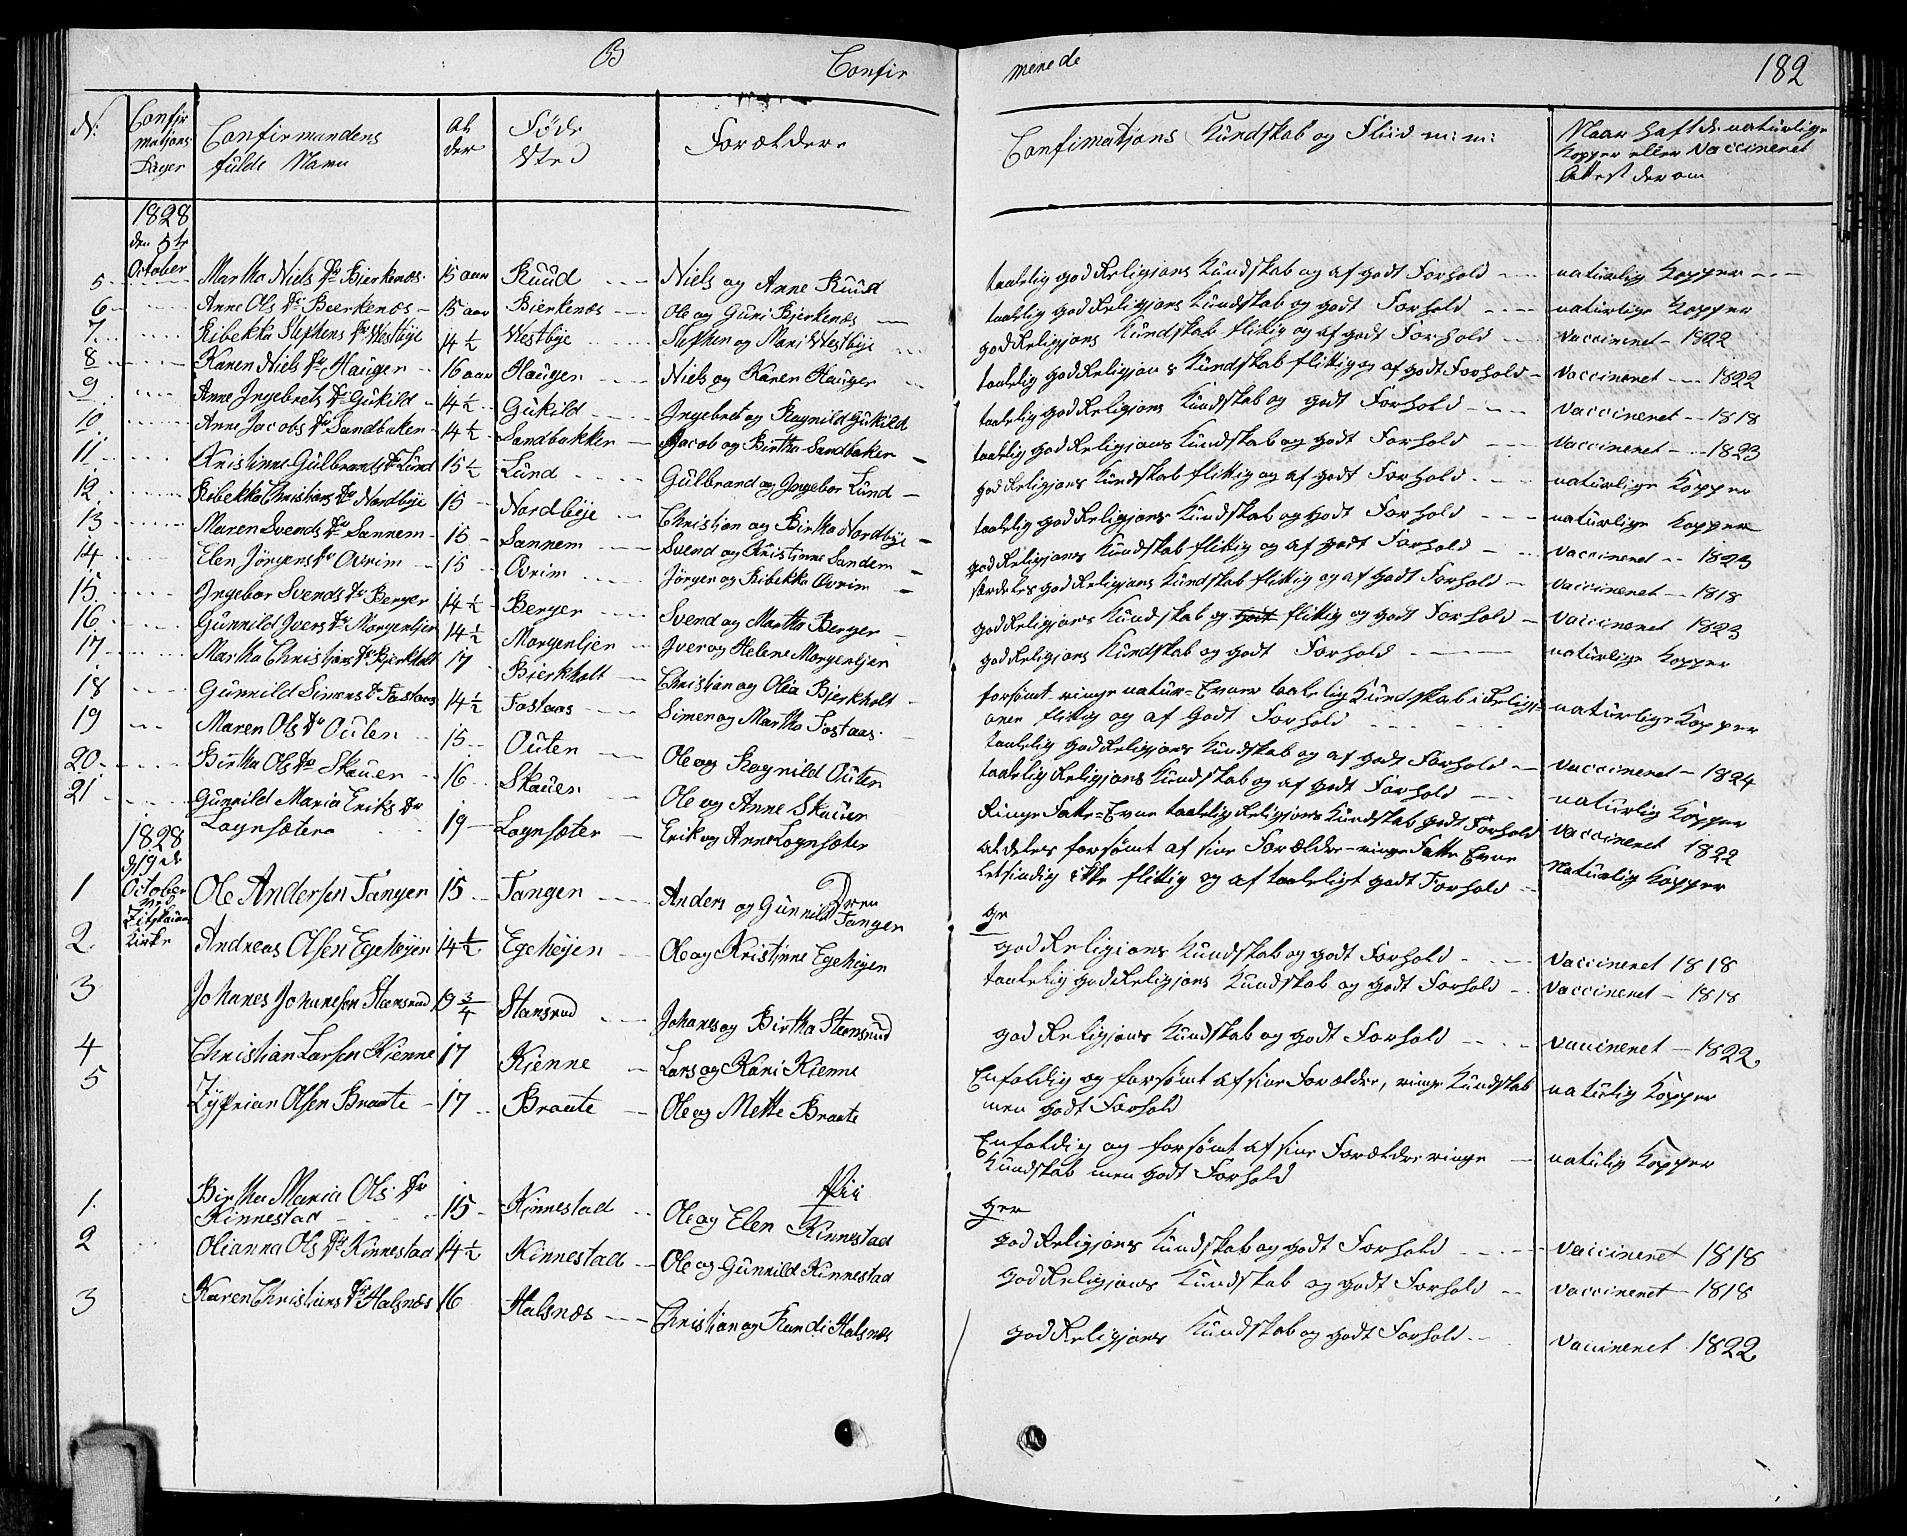 B Confir menede 182
N: Confirmations Dager Confirmandens fulde Navn Alder Føde Sted Forældre Confimatjons Kundskab og Fliid m: m: Naar hafte naturlige Kopper eller Vaccineret Attest derom
1828 den 5te October
5 Martha Niels Dr Bierkenæs 15 aar Ruud Niels og Anne Ruud taalelig god Religjons Kundskab og af godt Forhold naturlig Kopper
6 Anne Ols Dr Bierkenæs 15 aar Bierkenæs Ole og Guri Bierkenæs taalelig god Religjons Kundskab og godt Forhold naturlige Kopper
7 Ribekka Stephens Dr Westbye 14 1/2 Westbye Stephen og Mari Westbye god Religjons Kundskab flittig og af godt Forhold Vaccineret 1822
8 Karen Niels Dr Hauger 16 aar Hauger Niels og Karen Hauger taalelig god Religjons Kundskab flittig og af godt Forhold Vaccineret 1822
9 Anne Ingebrets Dr Gukild 14 1/2 Gukild Ingebret og Ragnild Gukild taalelig god Religjons Kundskab og godt Forhold Vaccineret 1818
10 Anne Jacobs Dr Sandbaken 14 1/2 Sandbakken Jacob og Birtha Sandbaken taalelig god Religjons Kundskab og godt Forhold Vaccineret 1823
11 Kristinne Gulbrants Dr Lund 15 1/2 Lund Gulbrand og Ingebor Lund god Religjons Kundskab flittig og af godt Forhold naturlige Kopper
12 Ribekka Christians Dr Nordbye 15 Nordbye Christian og Birtha Nordbye taalelig god Religjons Kundskab og godt Forhold naturlige Kopper
13 Maren Svends Dr Sannem 15 Sannem Svend og Christinne Sandem god Religjons Kundskab flittig og af godt Forhold Vaccineret 1823
14 Elen Jörgens Dr Ovrim 15 Ovrim Jörgen og Ribekka Ovrim særdeles god Religjons Kundskab flittig og af godt Forhold Vaccineret 1818
15 Ingebor Svends Dr Berger 14 1/2 Berger Svend og Martha Berger god Religjons Kundskab og godt flittig og godt Forhold Vaccineret 1823
16 Gunnild Ivers Dr Morgenljen 14 1/2 Morgenljen Iver og Helene Morgenljen god Religjons Kundskab og godt Forhold naturlige Kopper
17 Martha Christjans Dr Bjerkholt 17 Bjerkholt Christian og Olia Bjerkholt forsömt ringe natur=Evner taalelig Kundskab i Religjonen flittig og af Godt Forhold naturlige Kopper
18 Gunnild Simens Dr Fostaas 14 1/2 Fostaas Simen og Martha Fostaas taalelig god Religjons Kundskab og af godt Forhold Vaccineret 1824
19 Maren Ols Dr Outen 15 Outen Ole og Ragnild Outen taalelig Religjons Kundskab og af godt Forhold naturlig Kopper
20 Birtha Ols Dr Skauen 16 Skauen Ole og Anne Skauen Ringe Fatte=Evne taalelig Religjons Kundskab godt Forhold Vaccineret 1822
21 Gunnild Maria Eriks Dr Lognsæteren 19 Lognsæter Erik og Anne Lognsæter aldeles forsömt af sine Forældre ringe Fatte Evne Letsindig ikke flittig og af taaleligt godt Forhold Naturlig Kopper
1828 d 19de October
Kirke
Dren ge
1 Ole Andersen Tangen 15 Tangen Anders og Gunnild Tangen god Religjons Kundskab og godt Forhold Vaccineret 1818
2. Andreas Olsen Egehøjen 14 1/2 Egehøjen Ole og Kristinne Egehøjen taalelig god Religjons Kundskab og godt Forhold Vaccineret 1818
3 Johanes Johanesen Steensrud 19 3/4 Stensrud Johanes og Birtha Steensrud god Religjons Kundskab og godt Forhold Vaccineret 1822
4 Christian Larsen Kjenne 17 Kjenne Lars og Kari Kienne Enfoldig og forsömt af sine Forældre, ringe Kundskab men godt Forhold naturlig Kopper
5 Zyprian Olsen Braate 17 Braate Ole og Mette Braate Enfoldig og forsömt af sine Forældre ringe Kundskab men godt Forhold naturlig Kopper
Pii ger
1. Birtha Maria Ols Dr Kinnestad 15 Kinnestad Ole og Elen Kinnestad god Religjons Kundskab og godt Forhold vaccineret 1818
2 Olianna Ols Dr Kinnestad 14 1/2 Kinnestad Ole og Gunnild Kinnestad god Religjons Kundskab og godt Forhold vaccineret 1818
3 Karen Christians Dr Halsnæs 16 Halsnæs Christian og Randi Halsnæs god Religjons Kundskab og godt Forhold vaccineret 1822